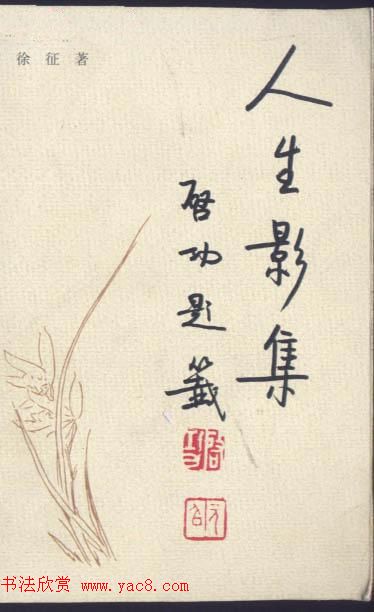 徐征著
人生影集
启功题籖
书法欣赏 www.yac8.com